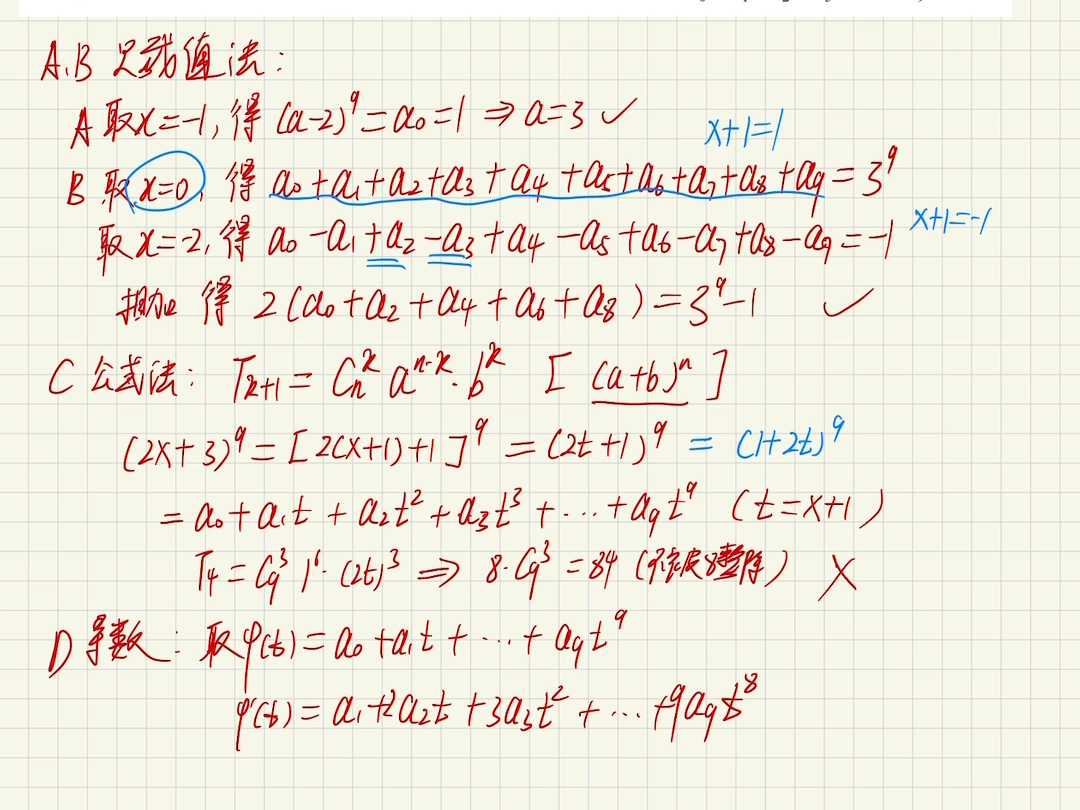 A.B 只需赋值法:
A 取x=-1, 得 (a-2)⁹=a₀=1 ⇒ a=3 ✓
x+1=1
B 取x=0, 得 a₀+a₁+a₂+a₃+a₄+a₅+a₆+a₇+a₈+a₉=3⁹
取x=-2, 得 a₀-a₁+a₂-a₃+a₄-a₅+a₆-a₇+a₈-a₉=-1 x+1=-1
相加 得 2(a₀+a₂+a₄+a₆+a₈)=3⁹-1 ✓
C 公式法: Tₖ₊₁=Cₙᵏaⁿ⁻ᵏ·bᵏ [(a+b)ⁿ]
(2x+3)⁹=[2(x+1)+1]⁹=(2t+1)⁹=(1+2t)⁹
=a₀+a₁t+a₂t²+a₃t³+...+a₉t⁹ (t=x+1)
T₄=C₉³1⁶·(2t)³ ⇒ 8·C₉³=84 (不能被8整除) X
D 导数: 取φ(t)=a₀+a₁t+...+a₉t⁹
φ'(t)=a₁+2a₂t+3a₃t²+...+9a₉t⁸